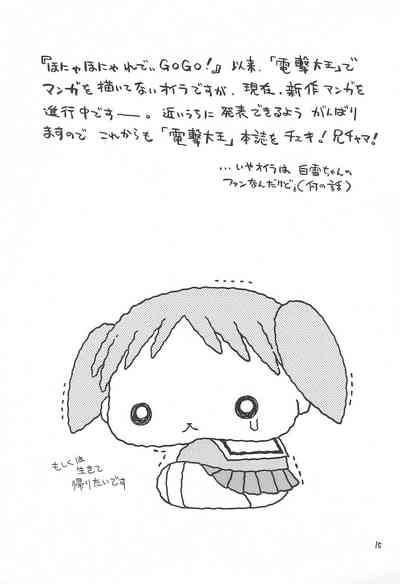 『ほにゃほにゃ れでぃ GOGO!』以来、「電撃大王」で
マンガを描いてないオイラですが、現在、新作マンガを
進行中ですー。近いうちに 発表できるよう がんばり
ますので これからも「電撃大王」本誌をチェキ! 兄チャマ!
…いやオイラは 白雪ちゃんの
ファンなんだけど。(何の話)
もしくは
生きて
帰りたいです
15